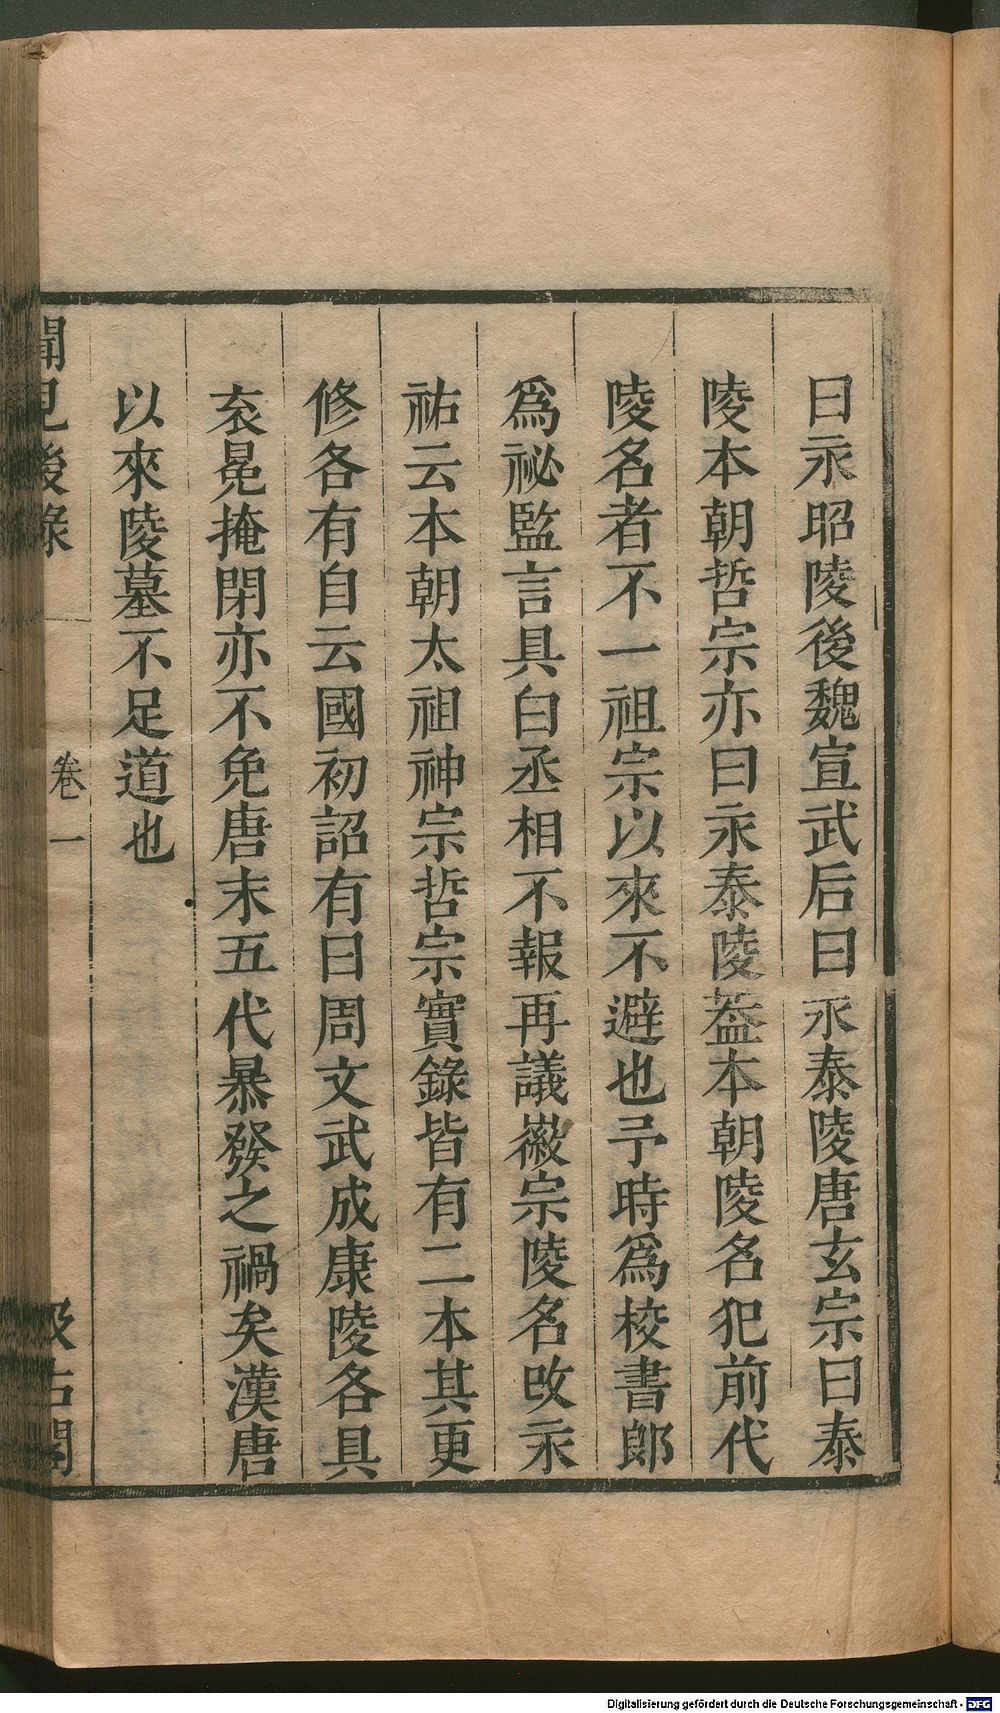 曰永昭陵後魏宣武后曰永泰陵唐玄宗曰泰
陵本朝哲宗亦曰永泰陵葢本朝陵名犯前代
陵名者不一祖宗以來不避也予時爲校書郎
爲祕監言具白丞相不報再議徽宗陵名改永
祐云本朝太祖神宗哲宗實錄皆有二本其更
修各有自云國初詔有曰周文武成康陵各具
衮冕掩閉亦不免唐末五代暴發之禍矣漢唐
以來陵墓不足道也
聞見後錄
卷一
汲古閣
Digitalisierung gefördert durch die Deutsche Forschungsgemeinschaft - DFG